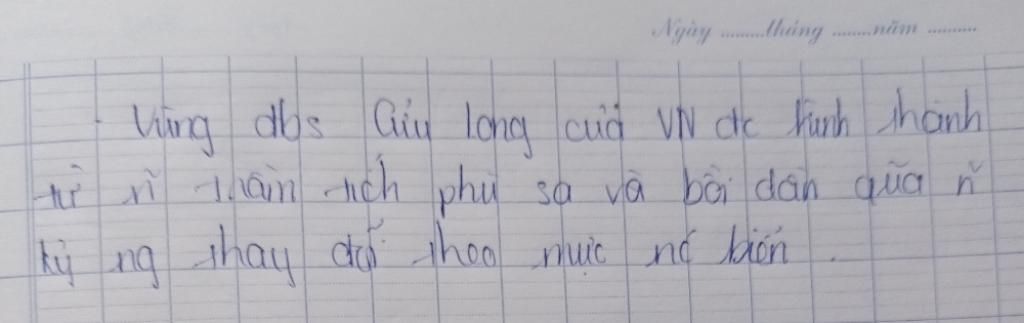 Ngày ......... tháng ........ năm ..........
- Vùng đbs Cửu Long của VN đc hình thành
từ ñ trầm tích phù sa và bồi dần qua ñ
kỷ ng thay đổi theo mực nc biển.